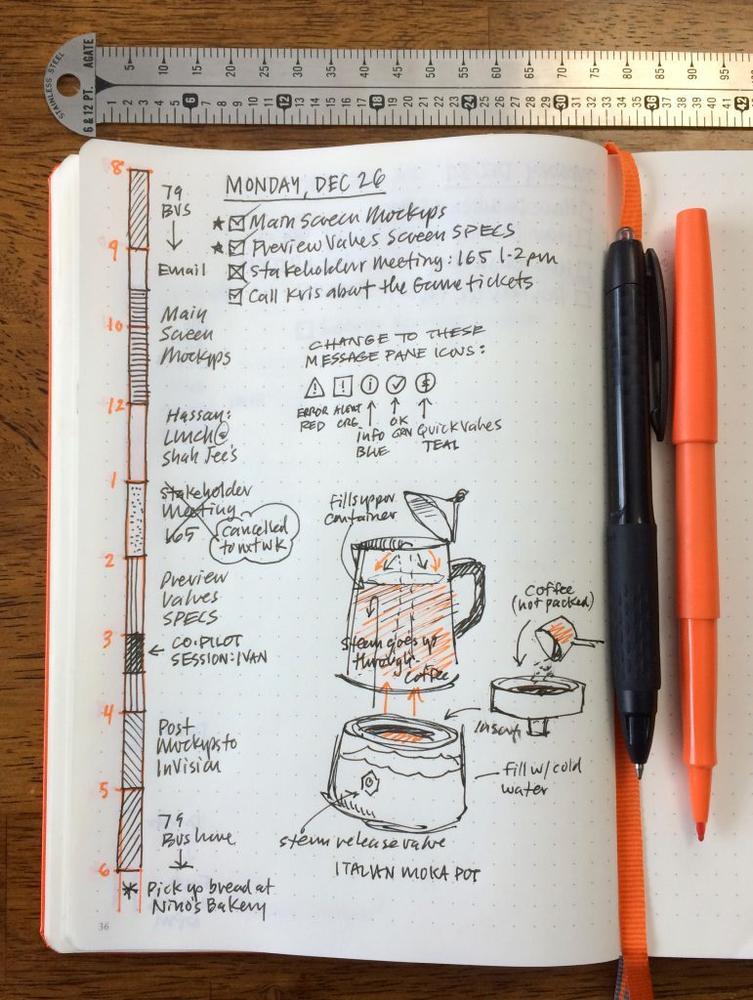 STAINLESS STEEL
AGATE
6 & 12 PT.
5 10 15 20 25 30 35 40 45 50 55 60 65 70 75 80 85 90 95
1 2 3 4 5 6 7 8 9 10 11 12 13 14 15 16 17 18 19 20 21 22 23 24 25 26 27 28 29 30 31 32 33 34 35 36 37 38 39 40 41 42
MONDAY, DEC 26
Main Screen Mockups
Preview Values Screen SPECS
Stakeholder Meeting: 165 1-2pm
Call Kris about the Game tickets
8
79
BUS
9
Email
Main
10
Screen
Mockups
12
Hassan:
Lunch @
Shah Jee's
1
Stakeholder
Meeting
165
Cancelled
to nxt wk
2
Preview
Values
SPECS
3
CO-PILOT
SESSION: IVAN
4
Post
Mockups to
InVision
5
79
Bus home
6
* Pick up bread at
Nino's Bakery
36
CHANGE TO THESE
MESSAGE PANE ICONS:
! ! i $
ERROR
RED
ALERT
ORG
info
BLUE
OK
GRN
Quick Values
TEAL
fills upper
container
Steam goes up
through
coffee
Coffee
(not packed)
in cup
fill w/ cold
water
steam release valve
ITALIAN MOKA POT